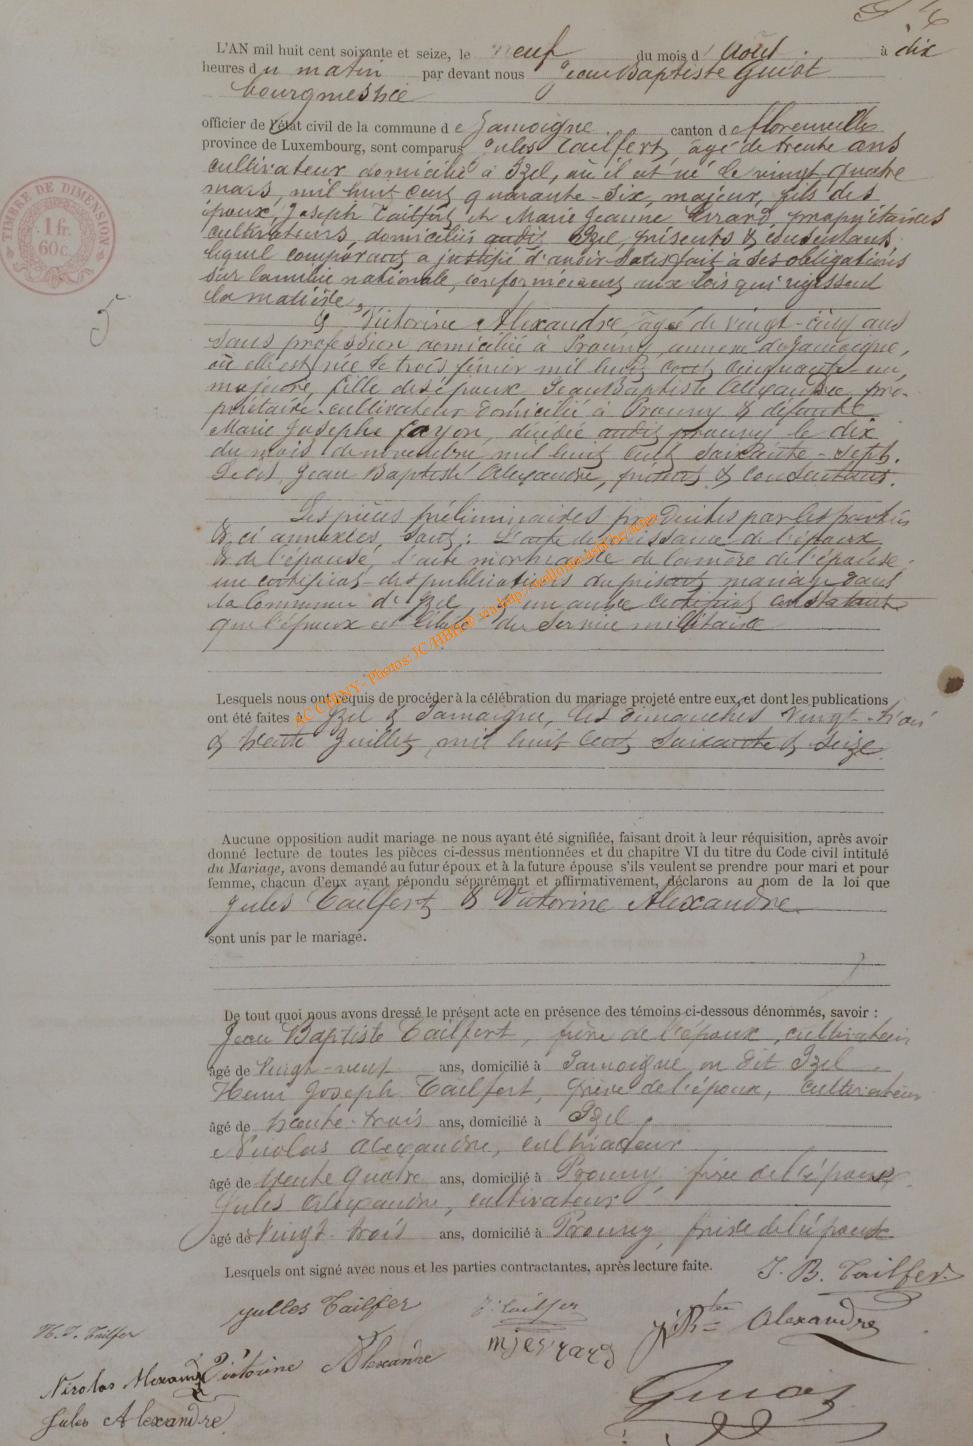 L'AN mil huit cent soixante et seize, le neuf du mois d'Août à dix
heures du matin par devant nous Jean Baptiste Guiot
bourgmestre
officier de l'état civil de la commune de Jamoigne canton de florenville
province de Luxembourg, sont comparus Jules Tailfert, âgé de trente ans
cultivateur domicilié à Izel, où il est né le vingt quatre
mars, mil huit cent quarante-six, majeur, fils des
époux, Joseph Tailfert, et Marie Jeanne Evrard propriétaires
cultivateurs, domiciliés audit Izel, présents & consentants,
lequel comparant a justifié d'avoir satisfait à ses obligations
sur la milice nationale, conformément aux lois qui régissent
la matière,
& Victorine Alexandre, âgée de vingt-cinq ans
sans profession domiciliée à Prouvy, annexe de Jamoigne,
où elle est née le trois février mil huit cent cinquante-un,
majeure, fille des époux Jean Baptiste Alexandre, pro-
priétaire-cultivateur domicilié à Prouvy & défunte
Marie Josephe fayon, décédée audit prouvy le dix
du mois de novembre mil huit cent soixante-sept.
Jean Baptiste Alexandre, présent & consentant.
Les pièces préliminaires produites par les parties
& ci annexées, sont: L'acte de naissance de l'époux
& de l'épouse, l'acte mortuaire de la mère de l'épouse,
un certificat des publications du présent mariage dans
la Commune d'Izel, & un autre certificat constatant
que l'époux est libéré du service militaire
Lesquels nous ont requis de procéder à la célébration du mariage projeté entre eux, et dont les publications
ont été faites à Izel & Jamoigne, les dimanches vingt-trois
& trente Juillet, mil huit cent soixante & seize.
Aucune opposition audit mariage ne nous ayant été signifiée, faisant droit à leur réquisition, après avoir
donné lecture de toutes les pièces ci-dessus mentionnées et du chapitre VI du titre du Code civil intitulé
du Mariage, avons demandé au futur époux et à la future épouse s'ils veulent se prendre pour mari et pour
femme, chacun d'eux ayant répondu séparément et affirmativement, déclarons au nom de la loi que
Jules Tailfert & Victorine Alexandre
sont unis par le mariage.
De tout quoi nous avons dressé le présent acte en présence des témoins ci-dessous dénommés, savoir :
Jean Baptiste Tailfert, frère de l'époux, cultivateur
âgé de vingt-neuf ans, domicilié à Jamoigne, on dit Izel
Henri Joseph Tailfert, frère de l'époux, cultivateur
âgé de trente-trois ans, domicilié à Izel,
Nicolas Alexandre, cultivateur
âgé de trente quatre ans, domicilié à Prouvy, frère de l'épouse,
Jules Alexandre, cultivateur
âgé de vingt-trois ans, domicilié à Prouvy, frère de l'épouse
Lesquels ont signé avec nous et les parties contractantes, après lecture faite. J. B. Tailfer
yulles Tailfer J. tailfer
H. J. Tailfer mj evrard JBte Alexandre
Nicolas Alexandre Victorine Alexandre
Jules Alexandre Guiot
TIMBRE DE DIMENSION
1 fr.
60c.
5
AC CHINY - Photos: JC/HBH